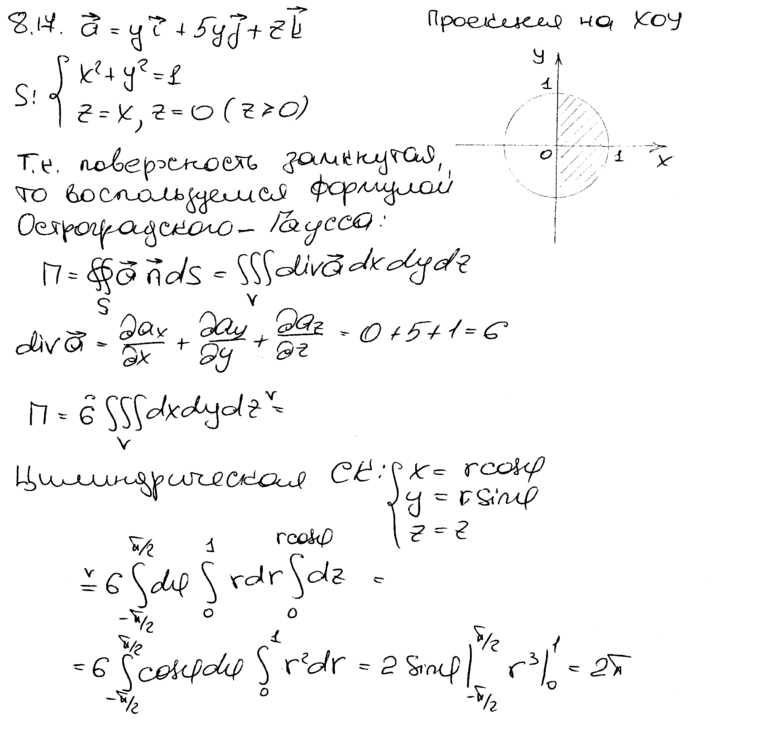 8.17. a⃗ = y i⃗ + 5y j⃗ + z k⃗
Проекция на XOY
S: { x² + y² = 1
z = x, z = 0 (z ≥ 0)
y
1
0
1
x
Т.к. поверхность замкнутая,
то воспользуемся формулой
Остроградского – Гаусса:
П = ∯_S a⃗ n⃗ dS = ∭_V div a⃗ dxdydz
div a⃗ = ∂ax/∂x + ∂ay/∂y + ∂az/∂z = 0 + 5 + 1 = 6
П = 6 ∭_V dxdydz =
Цилиндрическая СК: { x = r cosφ
y = r sinφ
z = z
= 6 ∫_{-π/2}^{π/2} dφ ∫_0^1 r dr ∫_0^{r cosφ} dz =
= 6 ∫_{-π/2}^{π/2} cosφ dφ ∫_0^1 r² dr = 2 sinφ |_{-π/2}^{π/2} r³ |_0^1 = 2π